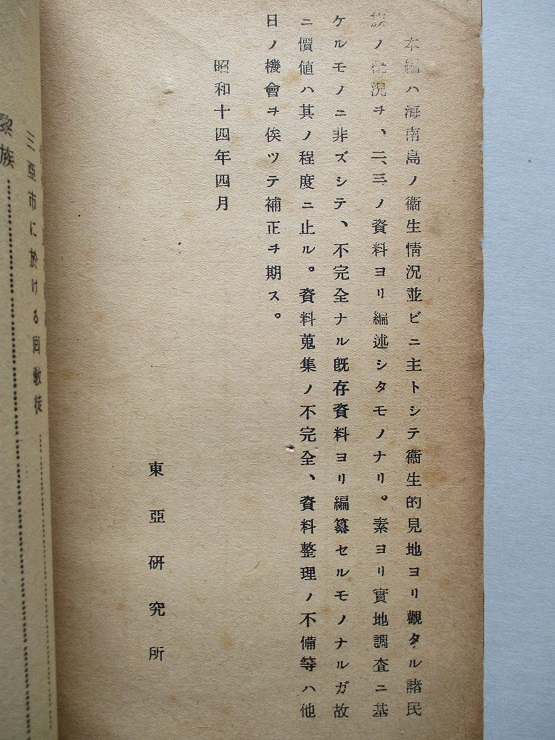 本編ハ海南島ノ衞生情況並ビニ主トシテ衞生的見地ヨリ觀タル諸民
族ノ概況ヲ、二、三ノ資料ヨリ編述シタモノナリ。素ヨリ實地調査ニ基
ケルモノニ非ズシテ、不完全ナル既存資料ヨリ編纂セルモノナルガ故
ニ價値ハ其ノ程度ニ止ル。資料蒐集ノ不完全、資料整理ノ不備等ハ他
日ノ機會ヲ俟ツテ補正ヲ期ス。
昭和十四年四月
東亞硏究所
三亞市に於ける回敎徒
黎族